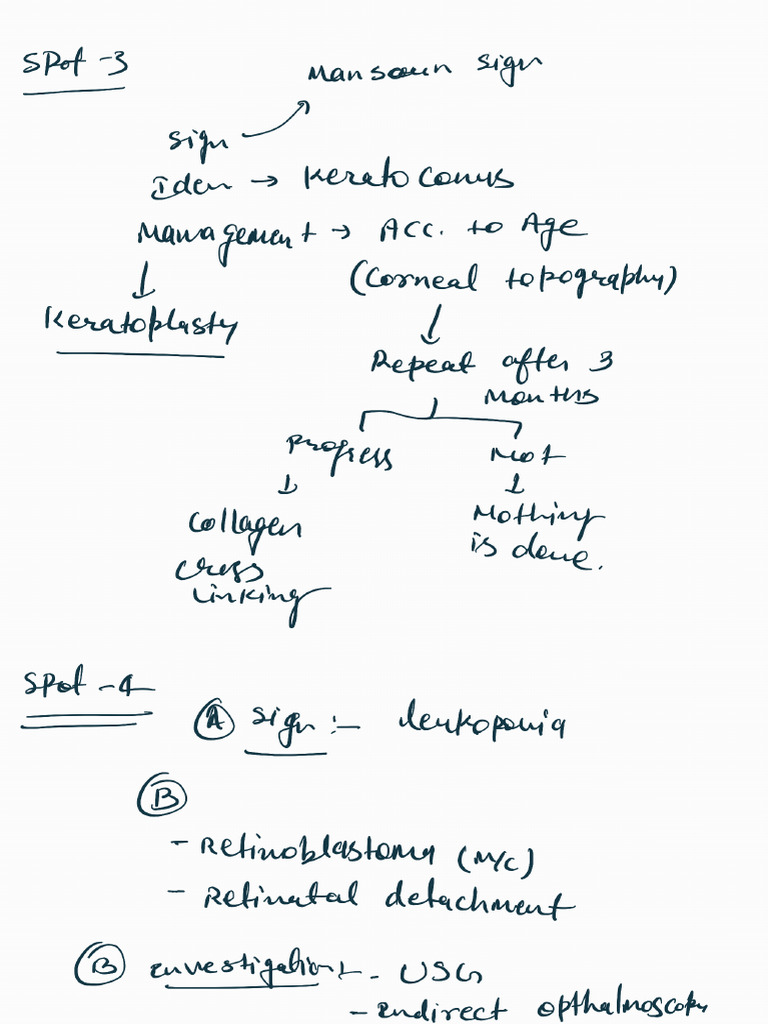 SPot -3
Mansoun sign
sign
Iden → Keratoconus
Management → Acc. to Age
(Corneal topography)
Keratoplasty
Repeat after 3
Months
Progress
Not
Collagen
Cross
Linking
Nothing
is done.
SPot -4
(A) sign :- leukoponia
(B)
- Retinoblastoma (M/C)
- Retinatal detachment
(B) investigation :- - USG
- Indirect opthalmoscopy